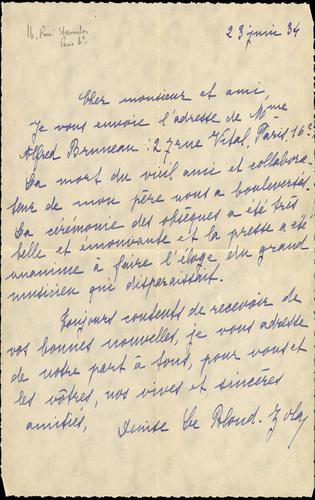 16, Rue Stanislas
Paris 6e
23 juin 34
Cher monsieur et ami,
Je vous envoie l'adresse de Mme
Alfred Bruneau : 27 rue Vital, Paris, 16e.
La mort du vieil ami et collabora-
teur de mon père nous a bouleversés.
La cérémonie des obsèques a été très
belle et émouvante et la presse a été
unanime à faire l'éloge du grand
musicien qui disparaissait.
Toujours contents de recevoir de
vos bonnes nouvelles, je vous adresse
de notre part à tous, pour vous et
les vôtres, nos vives et sincères
amitiés,
Denise Le Blond-Zola